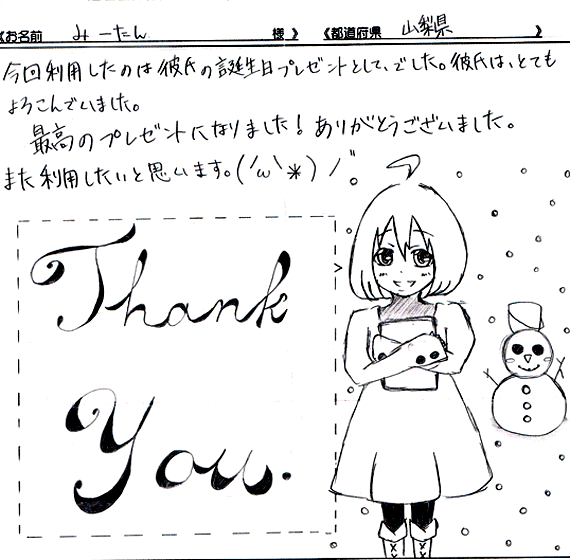 《お名前 みーたん 様》 《都道府県 山梨県 》
今回利用したのは彼氏の誕生日プレゼントとして、でした。彼氏は、とても
よろこんでいました。
最高のプレゼントになりました！ありがとうございました。
また利用したいと思います。(´ω`*)ノ"
Thank
You.